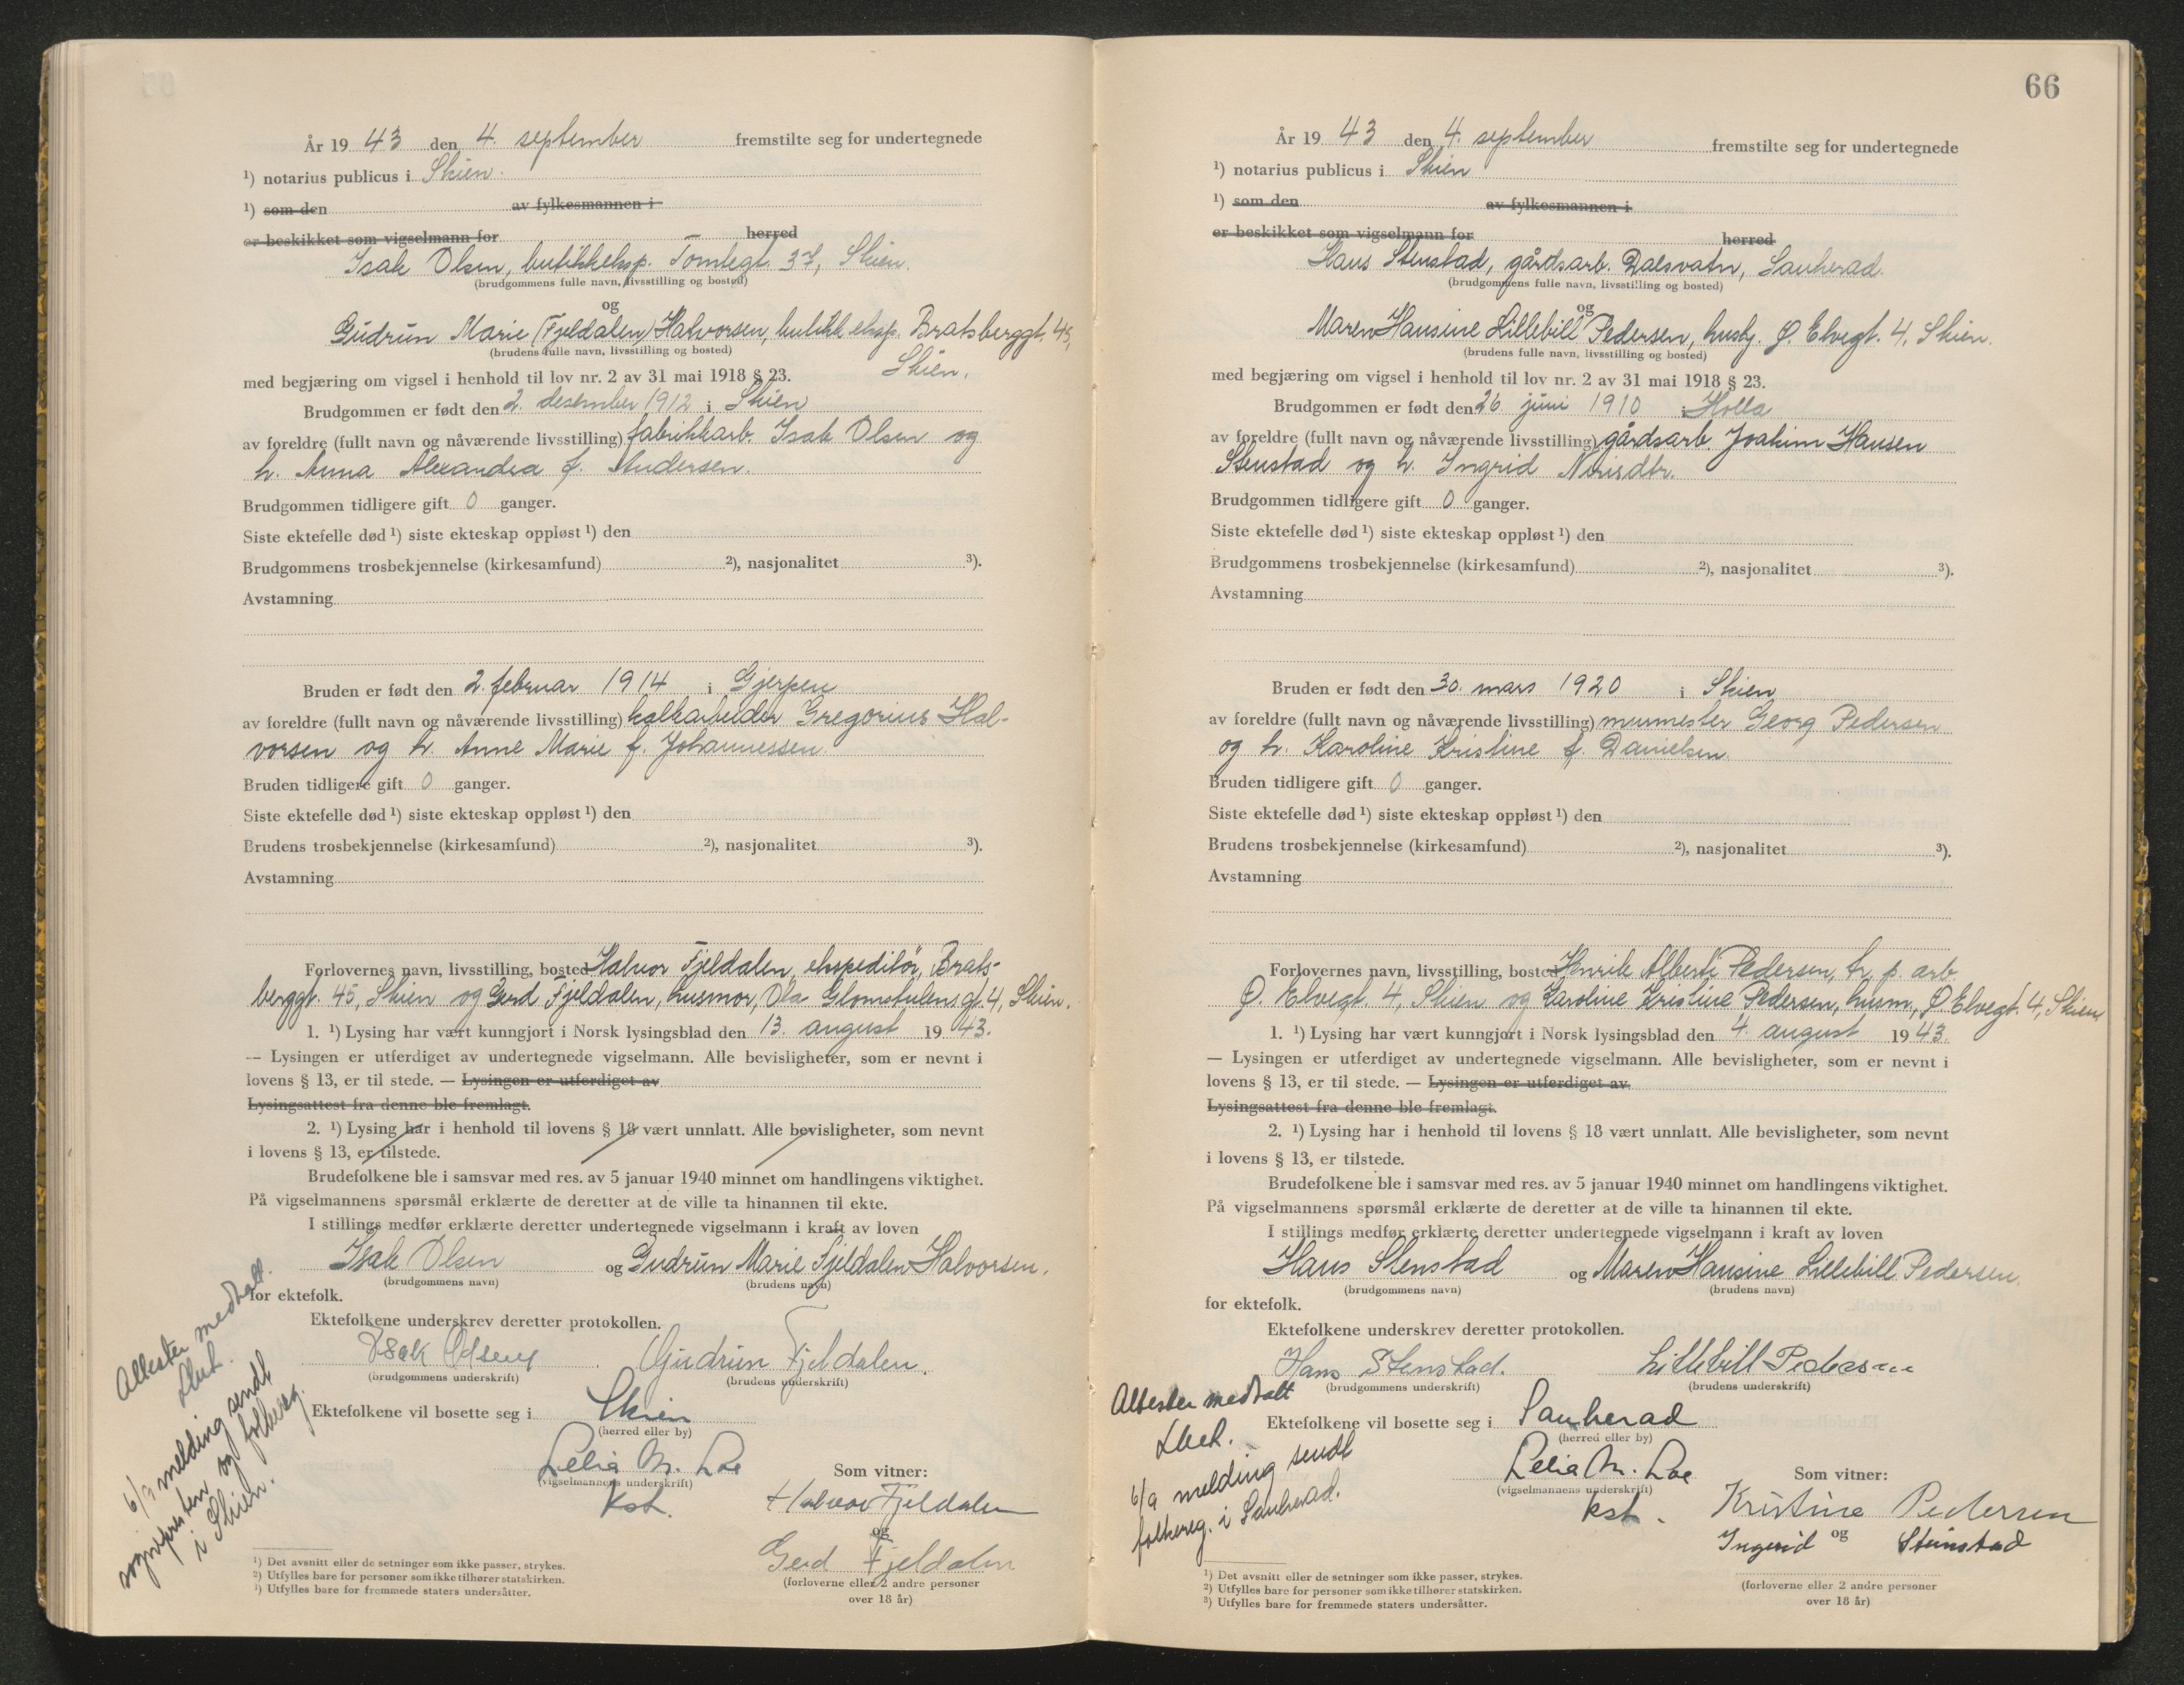 År 19 43 den 4. september fremstilte seg for undertegnede
¹) notarius publicus i Skien.
¹) som den av fylkesmannen i
er beskikket som vigselmann for herred
Isak Olsen, butikkeksp. Tomtegt. 37, Skien.
(brudgommens fulle navn, livsstilling og bosted)
og
Gudrun Marie (Fjeldalen) Halvorsen, butikk eksp. Bratsberggt. 45,
(brudens fulle navn, livsstilling og bosted)
Skien.
med begjæring om vigsel i henhold til lov nr. 2 av 31 mai 1918 § 23.
Brudgommen er født den 2. desember 1912 i Skien
av foreldre (fullt navn og nåværende livsstilling) fabrikkarb. Isak Olsen og
h. Anna Alexandra f. Andersen.
Brudgommen tidligere gift 0 ganger.
Siste ektefelle død ¹) siste ekteskap oppløst ¹) den
Brudgommens trosbekjennelse (kirkesamfund) ²), nasjonalitet ³).
Avstamning
Bruden er født den 2. februar 1914 i Gjerpen
av foreldre (fullt navn og nåværende livsstilling) kalkarbeider Gregorius Hal-
vorsen og h. Anne Marie f. Johannessen.
Bruden tidligere gift 0 ganger.
Siste ektefelle død ¹) siste ekteskap oppløst ¹) den
Brudens trosbekjennelse (kirkesamfund) ²), nasjonalitet ³).
Avstamning
Forlovernes navn, livsstilling, bosted Halvor Fjeldalen, ekspeditør, Brats-
berggt. 45, Skien og Gerd Fjeldalen, husmor, Ola Glomstulens gt. 4, Skien.
1. ¹) Lysing har vært kunngjort i Norsk lysingsblad den 13. august 19 43.
— Lysingen er utferdiget av undertegnede vigselmann. Alle bevisligheter, som er nevnt i
lovens § 13, er til stede. — Lysingen er utferdiget av
Lysingsattest fra denne ble fremlagt.
2. ¹) Lysing har i henhold til lovens § 18 vært unnlatt. Alle bevisligheter, som nevnt
i lovens § 13, er tilstede.
Brudefolkene ble i samsvar med res. av 5 januar 1940 minnet om handlingens viktighet.
På vigselmannens spørsmål erklærte de deretter at de ville ta hinannen til ekte.
I stillings medfør erklærte deretter undertegnede vigselmann i kraft av loven
Isak Olsen og Gudrun Marie Fjeldalen Halvorsen.
(brudgommens navn) (brudens navn)
for ektefolk.
Ektefolkene underskrev deretter protokollen.
Isak Olsen Gudrun Fjeldalen.
(brudgommens underskrift) (brudens underskrift)
Ektefolkene vil bosette seg i Skien
(herred eller by)
Lelia M. Loe
(vigselmannens underskrift)
kst.
Som vitner:
Halvor Fjeldalen
og
Gerd Fjeldalen
(forloverne eller 2 andre personer
over 18 år)
Attester medtatt.
6/9 melding sendt
sognepresten og folkereg.
i Skien.
¹) Det avsnitt eller de setninger som ikke passer, strykes.
²) Utfylles bare for personer som ikke tilhører statskirken.
³) Utfylles bare for fremmede staters undersåtter.
66
År 19 43 den 4. september fremstilte seg for undertegnede
¹) notarius publicus i Skien
¹) som den av fylkesmannen i
er beskikket som vigselmann for herred
Hans Stenstad, gårdsarb. Dalsvatn, Sauherad.
(brudgommens fulle navn, livsstilling og bosted)
og
Maren Hansine Lillebill Pedersen, husbg. Ø. Elvegt. 4, Skien.
(brudens fulle navn, livsstilling og bosted)
med begjæring om vigsel i henhold til lov nr. 2 av 31 mai 1918 § 23.
Brudgommen er født den 26 juni 1910 i Holla
av foreldre (fullt navn og nåværende livsstilling) gårdsarb. Joakim Hansen
Stenstad og h. Ingrid
Brudgommen tidligere gift 0 ganger.
Siste ektefelle død ¹) siste ekteskap oppløst ¹) den
Brudgommens trosbekjennelse (kirkesamfund) ²), nasjonalitet ³).
Avstamning
Bruden er født den 30. mars 1920 i Skien
av foreldre (fullt navn og nåværende livsstilling) murmester Georg Pedersen
og h. Karoline Kristine f. Danielsen.
Bruden tidligere gift 0 ganger.
Siste ektefelle død ¹) siste ekteskap oppløst ¹) den
Brudens trosbekjennelse (kirkesamfund) ²), nasjonalitet ³).
Avstamning
Forlovernes navn, livsstilling, bosted Henrik Albert Pedersen, tr. p. arb.
Ø. Elvegt. 4, Skien og Karoline Kristine Pedersen, husm., Ø. Elvegt. 4, Skien
1. ¹) Lysing har vært kunngjort i Norsk lysingsblad den 4. august 19 43.
— Lysingen er utferdiget av undertegnede vigselmann. Alle bevisligheter, som er nevnt i
lovens § 13, er til stede. — Lysingen er utferdiget av
Lysingsattest fra denne ble fremlagt.
2. ¹) Lysing har i henhold til lovens § 18 vært unnlatt. Alle bevisligheter, som nevnt
i lovens § 13, er tilstede.
Brudefolkene ble i samsvar med res. av 5 januar 1940 minnet om handlingens viktighet.
På vigselmannens spørsmål erklærte de deretter at de ville ta hinannen til ekte.
I stillings medfør erklærte deretter undertegnede vigselmann i kraft av loven
Hans Stenstad og Maren Hansine Lillebill Pedersen.
(brudgommens navn) (brudens navn)
for ektefolk.
Ektefolkene underskrev deretter protokollen.
Hans Stenstad. Lillebill Pedersen
(brudgommens underskrift) (brudens underskrift)
Ektefolkene vil bosette seg i Sauherad
(herred eller by)
Lelia M. Loe
(vigselmannens underskrift)
kst.
Som vitner:
Kristine Pedersen
og
Ingerid Stenstad
(forloverne eller 2 andre personer
over 18 år)
Attester medtatt
6/9 melding sendt
folkereg. i Sauherad.
¹) Det avsnitt eller de setninger som ikke passer, strykes.
²) Utfylles bare for personer som ikke tilhører statskirken.
³) Utfylles bare for fremmede staters undersåtter.